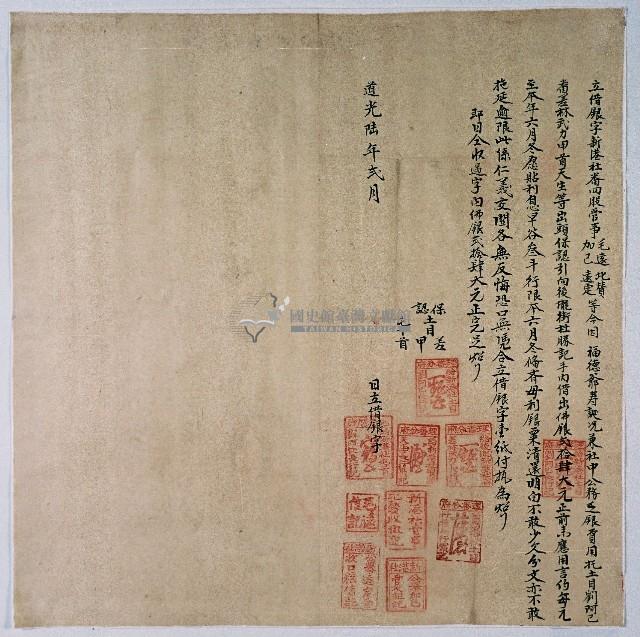 立借銀字新港社番四股管事毛遠 北賛 加己 遠定 等今因 福德爺壽誕兄兼社中公務乏銀費用托土目劉阿己
番差林武力甲首天生等出頭保認引向後壠街杜勝記手內借出佛銀弍拾肆大元正前來應用言約每元
至年年六月冬愿貼利息早谷叁斗行限年六月冬備齊母利銀粟清還明白不敢少欠分文亦不敢
拖延逾限此係仁義交關各無反悔恐口無憑合立借銀字壹紙付執為炤
即日全收過字內佛銀弍拾肆大元正完足炤
保認 土目 差 甲首
日立借銀字
道光陸年弍月
國史館臺灣文獻館
TAIWAN HISTORICA